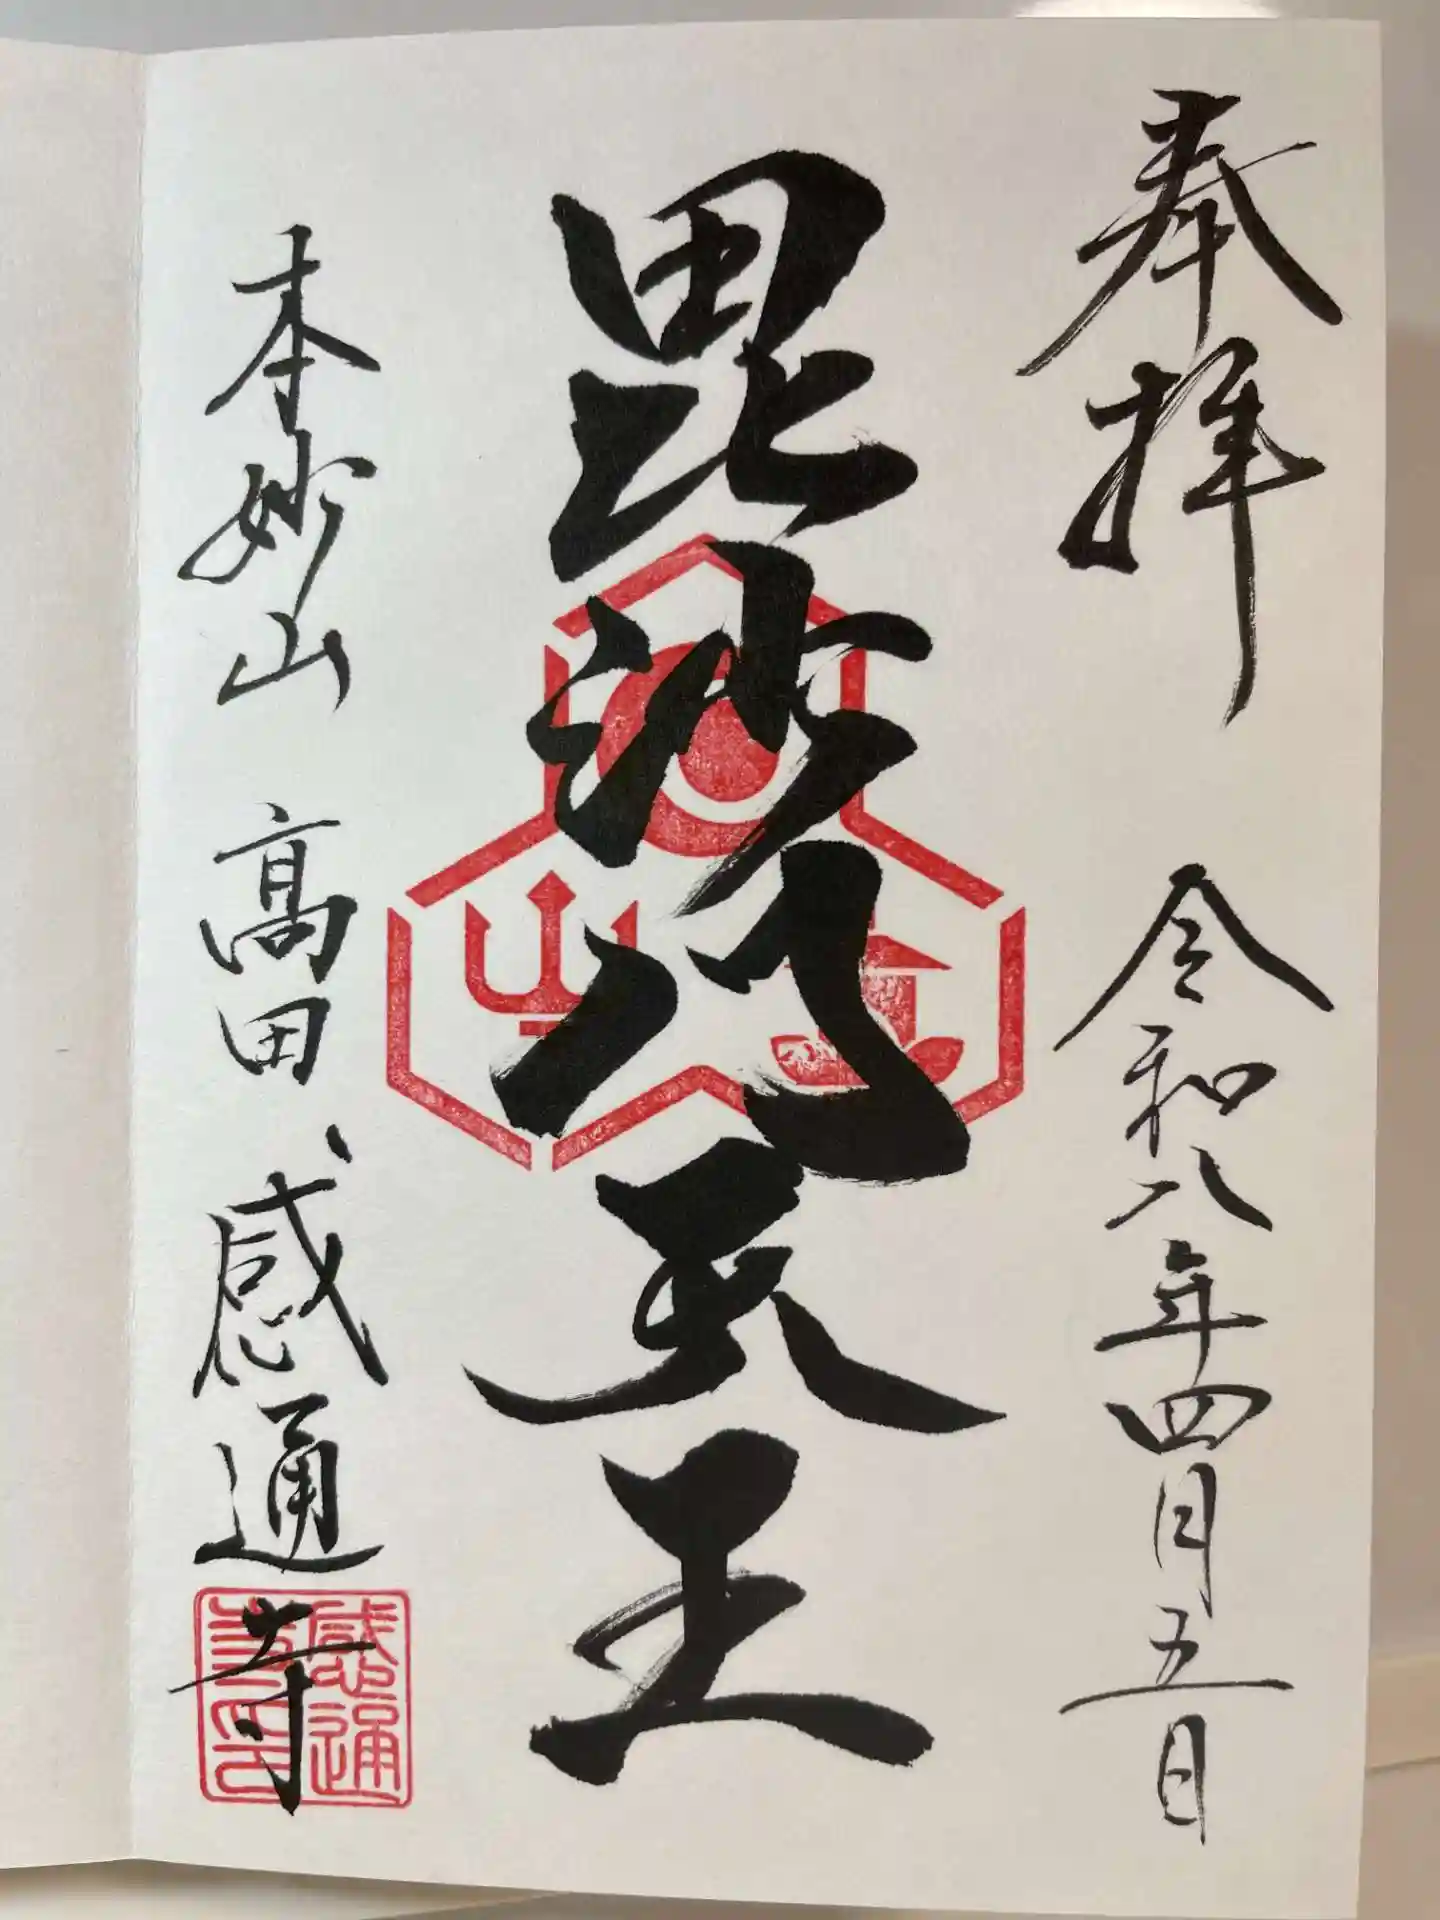 奉拝
令和八年四月五日
毘沙門天王
本妙山 高田 感通寺
感通
寺印